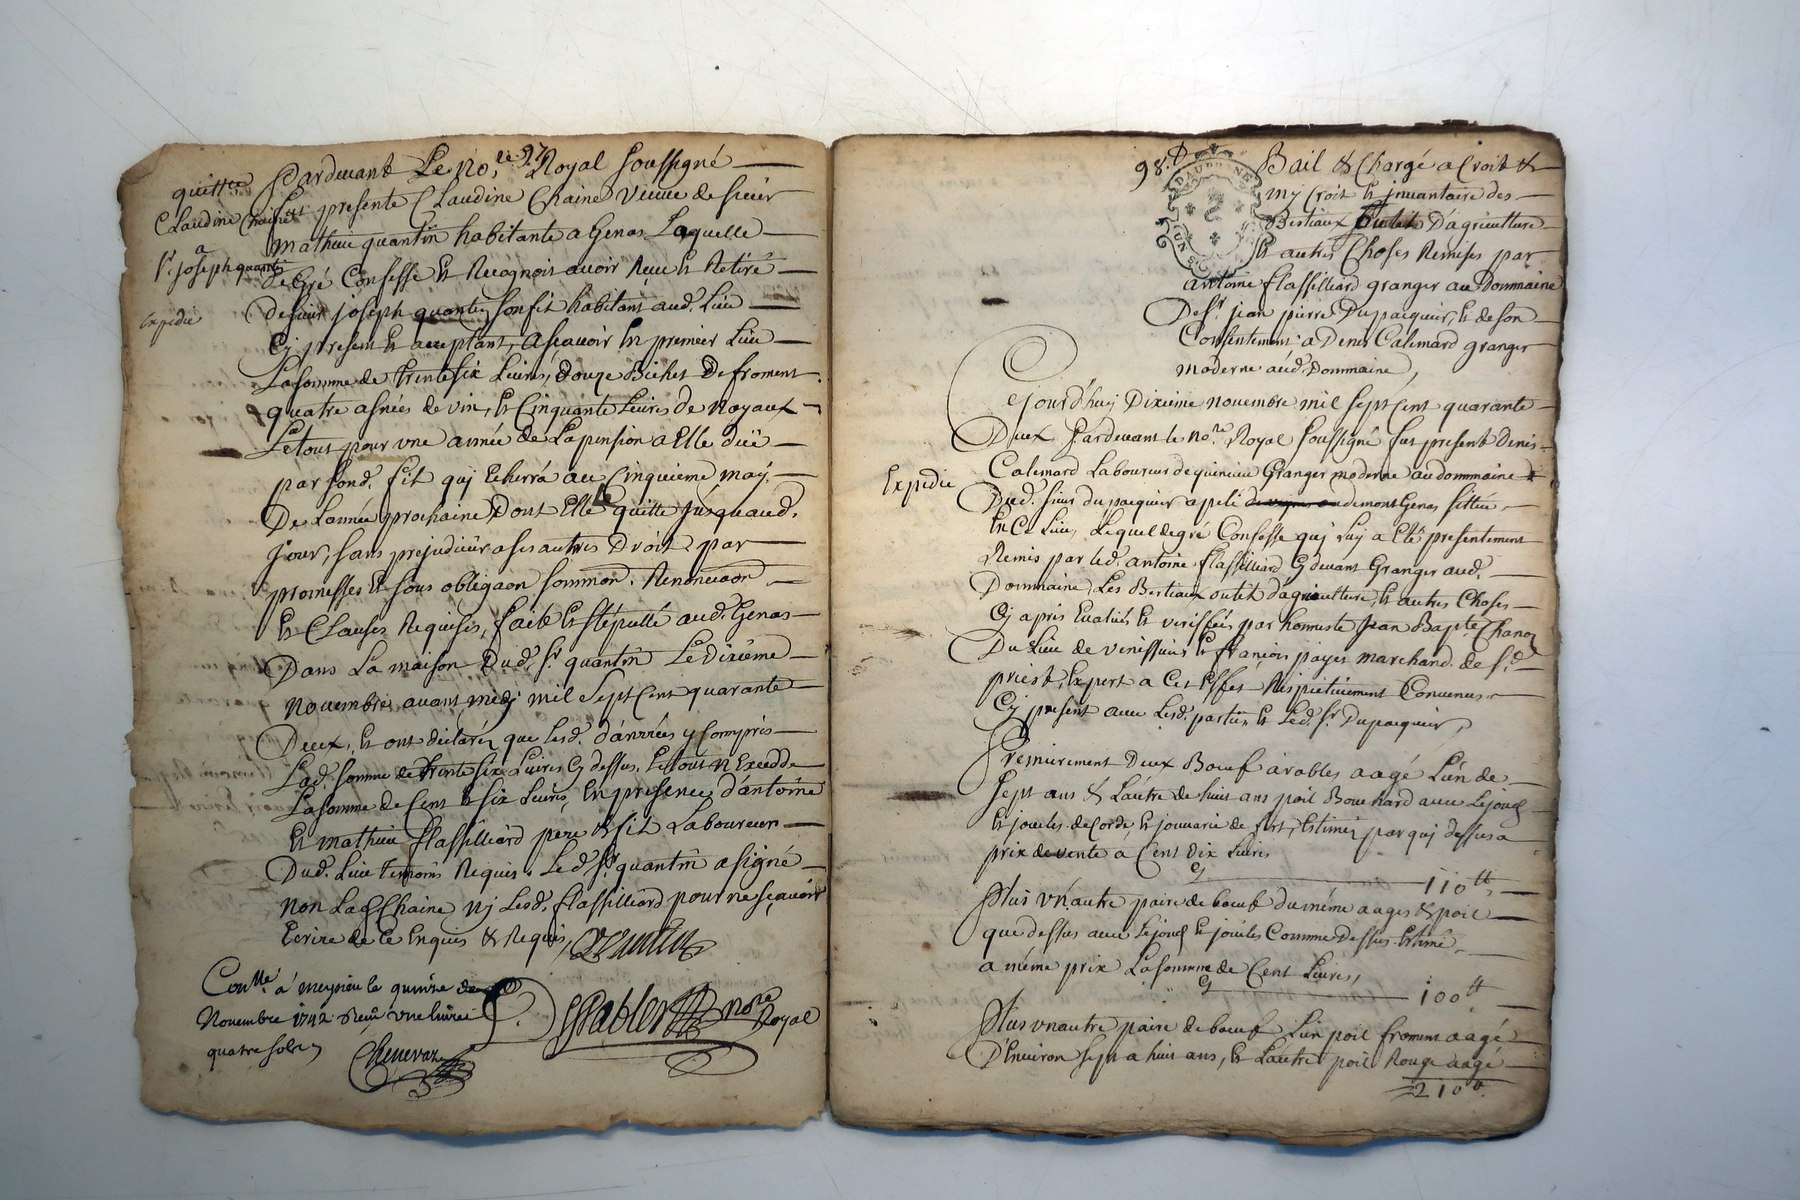 quitte
Claudine Chaine
a
Sr. joseph quantin
Expedié
Pardevant Le Nore. Royal soussigné
fut presente Claudine Chaine veuve de sieur
mathieu quantin habitante a Genas Laquelle
de Gré Confesse et Recognoit avoir Reçu et Retiré
de sieur joseph quantin son fil habitant aud. Lieu
Cy present et acceptant, ascavoir En premier Lieu
La somme de trente six Livres, douze Bichet De froment
quatre asnées de vin, et Cinquante Livres de Noyaux
Le tout pour une année de La pension a Elle düe
par sond. fil qui Echerra au Cinquieme may
De L'année prochaine, Dont Elle quitte jusquaud.
jour, sans prejudice a ses autres Droit par
promesses et sous obligaon sommon. Renonciaon
et Clauses Requises, fait et stépullé aud. Genas
Dans La maison Dud. Sr quantin Le Dixieme
Novembre avant midy mil sept Cent quarante
Deux, et ont déclaré que Lesd. danrées y Compris
Lad. somme de trente six Livres Cy dessus, Le tout n'Excedde
La somme de Cent et six Livres, En presence d'antoine
et mathieu flassilliard pere et fil Laboureur
Dud. Lieu temoins Requis, Led. Sr. quantin a signé
non Lad. Chaine ny Lesd. flassilliard pour ne sçavoir
Ecrire de Ce Enquis et Requis
quantin
Conlle. a meyzieu le quinze de
Novembre 1742 Reçu une livre
quatre sols
Chenevaz
Pabler nore Royal
98.
DAUPHINE
UN S
Bail et Chargé a Croit et
my Croit et jnvantaire des
Bestiaux outils D'agriculture
et autres Choses Remises par
antoine flassilliard granger au Dommaine
De Sr. jean pierre Dupacquier, et de son
Consentement a Denis Calemard granger
moderne aud. Dommaine,
Expedie
Cejourd'huy Dixieme novembre mil sept Cent quarante
Deux Pardevant le nore. Royal soussigné fut present denis
Calemard Laboureur de Granger moderne au dommaine
Dud. sieur dupacquier apellé de mont Genas sittué
En Ce Lieu, Lequel de gré Confesse quj Luy a eté presentement
Remis par led. antoine flassilliard Cy devant Granger aud.
Dommaine, Les Bestiaux outils d'agriculture, et autres Choses
Cy après Evalués et veriffiés par honneste Jean Bapte. Chanoz
Du Lieu de venissieu et françois payet marchand de St.
priest, Expert a Cet Effet Respectivement Convenus
Cy present avec Lesd. parties et Led. Sr. Dupacquier,
Premierement Deux Bœuf arables aagé L'un de
sept ans et L'autre de huit ans poil Bouchard avec Le joug
et jouiles de Corde, et jouvarie de fert, Estimés par quj dessus a
prix de vente a Cent Dix Livres
Cy 110 tt
Plus un autre paire de bœuf du même aages et poil
que dessus avec Le joug et jouiles Comme Dessus, Estimé
a même prix La somme de Cent Livres,
Cy 100 tt
Plus un autre paire de bœuf L'un poil froment aagé
D'Environ sept a huit ans, et L'autre poil Rouge aagé
210 tt